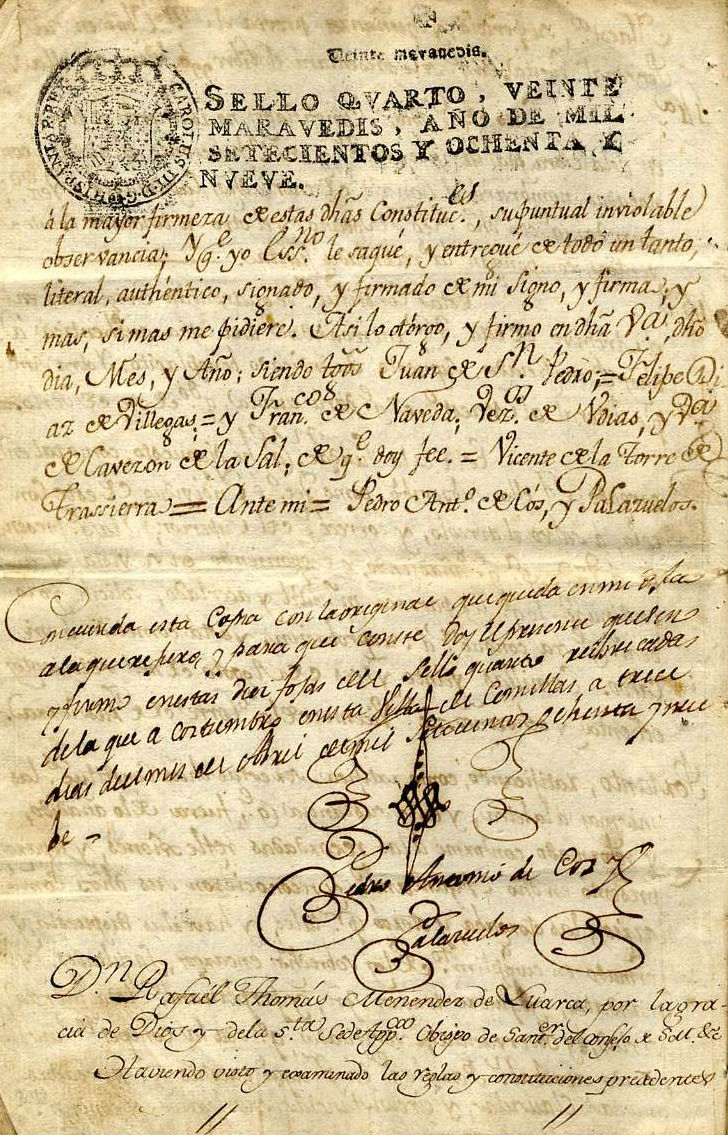 Veinte maravedis.
CAROLUS III D. G. HISPANIAR. REX
SELLO QVARTO, VEINTE
MARAVEDIS, AÑO DE MIL
SETECIENTOS Y OCHENTA Y
NVEVE.
á la mayor firmeza de estas dhãs Constituc.es, su puntual inviolable
observancia; Yq.e yo Ess.no le saqué, y entregué de todo un tanto,
literal, authéntico, signado, y firmado de mi signo, y firma, y
mas, si mas me pidiere. Asi lo otórgo, y firmo en dhã V.a, dhõ
dia, Mes, y Año; siendo tgõs Juan de S.n Pedro; = Felipe Di
az de Villegas; = y Fran.cos de Naveda; Vez.os de Vdias, y V.a
de Cavezon de la Sal; de q.e doy fee. = Vicente de la Torre de
Trassierra = Ante mi = Pedro Ant.o de Cós, y Palazuelos.
Concuerda esta Copia con la original que queda en mi
a la que refiero, y para que conste doy el presente que
y firmo en estas diez fojas del Sello quarto rubricadas
de la que acostumbro en esta Villa de Comillas a trece
dias del mes de Abril de mil Setecientos ochenta y nue
be ~
Pedro Antonio de Cos y
Palazuelos
D.n Rafaél Thomás Menendez de Luarca, por la gra-
cia de Dios y de la S.ta Sede App.ca Obispo de Sant.er del Consejo de S.M. &c
Haviendo visto y examinado las reglas y constituciones precedentes